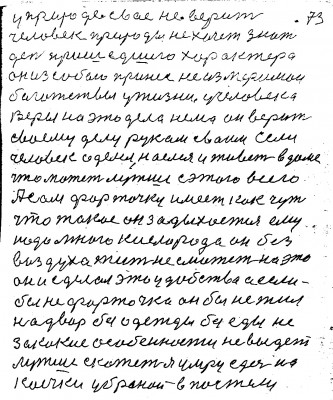 у природе свае не верит 73
человек природы не хочет знат
ден пришедшиго характера
он из собою принес неизмеримои
боготевы ужизни учеловека
Веры на это дела нема он верит
своему делу рукам своим Если
человек оделся наелся и живет в доме
что может лутше с этого всего
А сам форточку имеет как чут
что такое он задыхаетса ему
надо много кислорода он без
воздуха жит не сможет на это
он и сделал это удобства а если-
бы не форточка он бы не жил
на двор бы одежды бы еды не
за какие особенности не выдет
лутше скажет я умру здес на
коечки убраной в постели